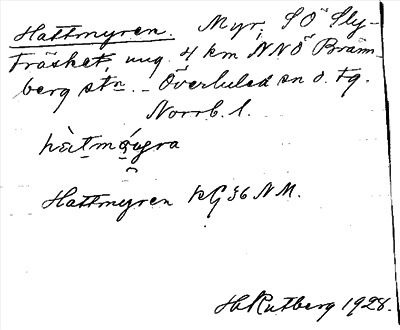 Hattmyren. Myr, SÖ Sly-
träsket ung. 4 km NNÖ Bräm-
berg stn. Överluleå sn o. tg.
Norrb. l.
Hattmyren kG 36 N.M.
H. Rutberg 1928.